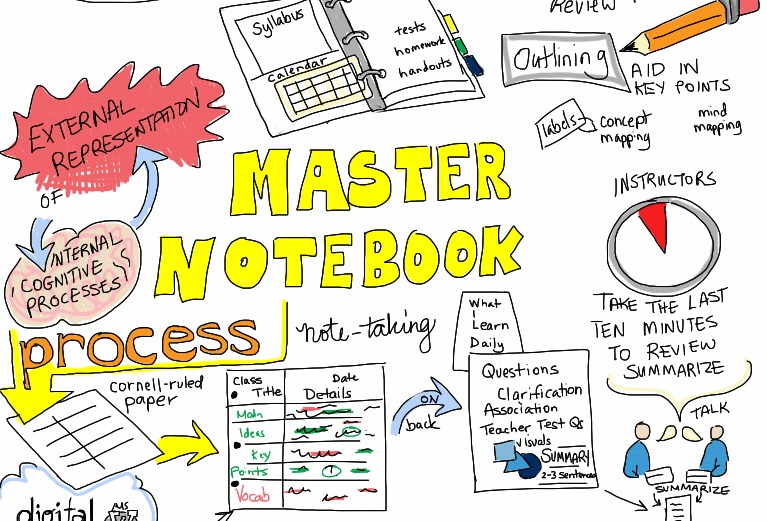 REVIEW
Syllabus
calendar
tests
homework
handouts
Outlining
AID IN
KEY POINTS
labels
concept
mapping
mind
mapping
EXTERNAL
REPRESENTATION
OF
INTERNAL
COGNITIVE
PROCESSES
MASTER
NOTEBOOK
INSTRUCTORS
TAKE THE LAST
TEN MINUTES
TO REVIEW
SUMMARIZE
TALK
SUMMARIZE
process
note-taking
What
I Learn
Daily
cornell-ruled
paper
Class
Title
Date
Details
Main
Ideas
Key
Points
Vocab
ON
back
Questions
Clarification
Association
Teacher Test Qs
visuals
SUMMARY
2-3 sentences
digital